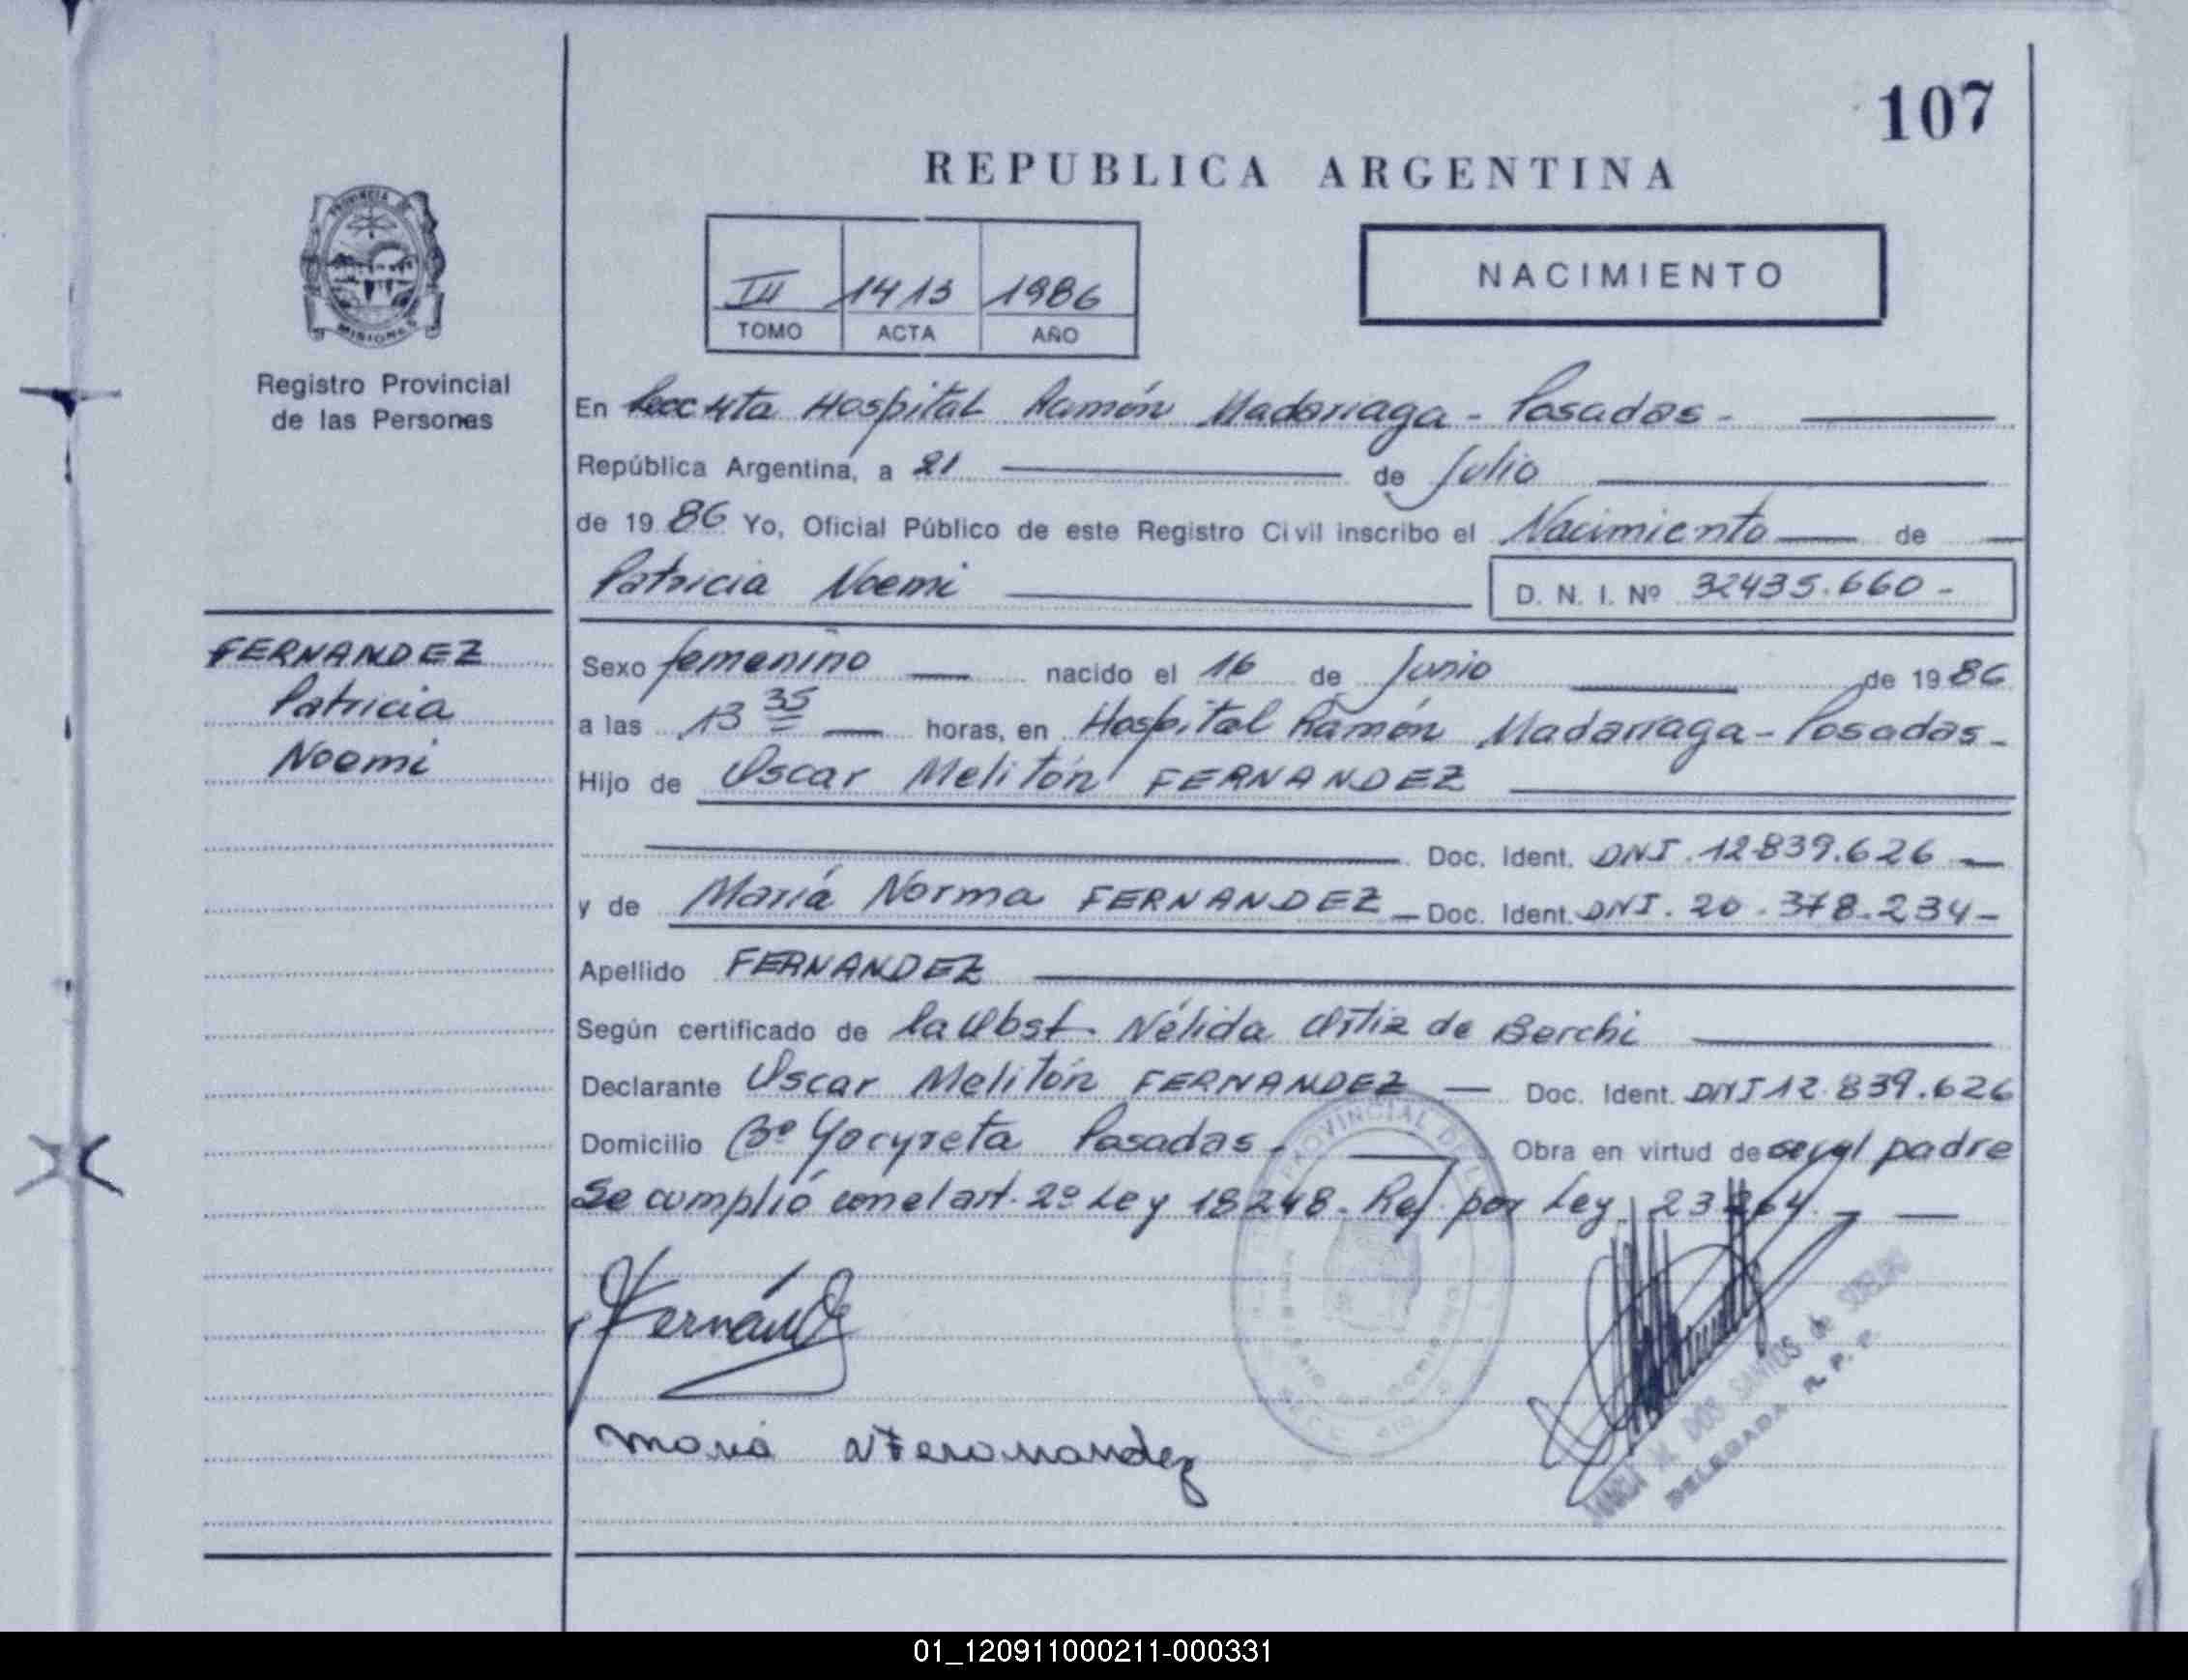 107
REPUBLICA ARGENTINA
PROVINCIA DE
MISIONES
Registro Provincial
de las Personas
III 1413 1986
TOMO ACTA AÑO
NACIMIENTO
En Secc 4ta Hospital Ramón Madariaga - Posadas -
República Argentina, a 21 de Julio
de 1986 Yo, Oficial Público de este Registro Civil inscribo el Nacimiento de
Patricia Noemi D. N. I. Nº 32435.660 -
FERNANDEZ
Patricia
Noemi
Sexo femenino nacido el 16 de Junio de 1986
a las 13 35 horas, en Hospital Ramón Madariaga - Posadas -
Hijo de Oscar Melitón FERNANDEZ
Doc. Ident. DNI. 12.839.626
y de María Norma FERNANDEZ - Doc. Ident. DNI. 20.378.234 -
Apellido FERNANDEZ
Según certificado de la Obst. Nélida Ortiz de Berchi
Declarante Oscar Melitón FERNANDEZ - Doc. Ident. DNI 12.839.626
Domicilio Bº Yacyreta Posadas - Obra en virtud de ser el padre
Se cumplió con el art. 2º Ley 18248. Ref. por Ley 23264. -
PROVINCIAL DE
Fernández
Maria N Fernandez
M. DOS SANTOS de
DELEGADA R. P. P.
01_120911000211-000331